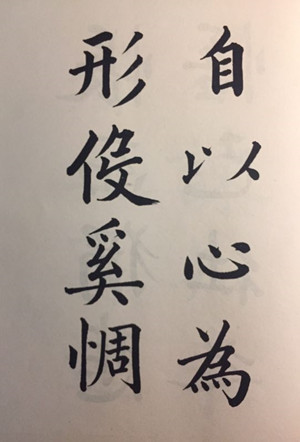 自以心為
形伇奚惆